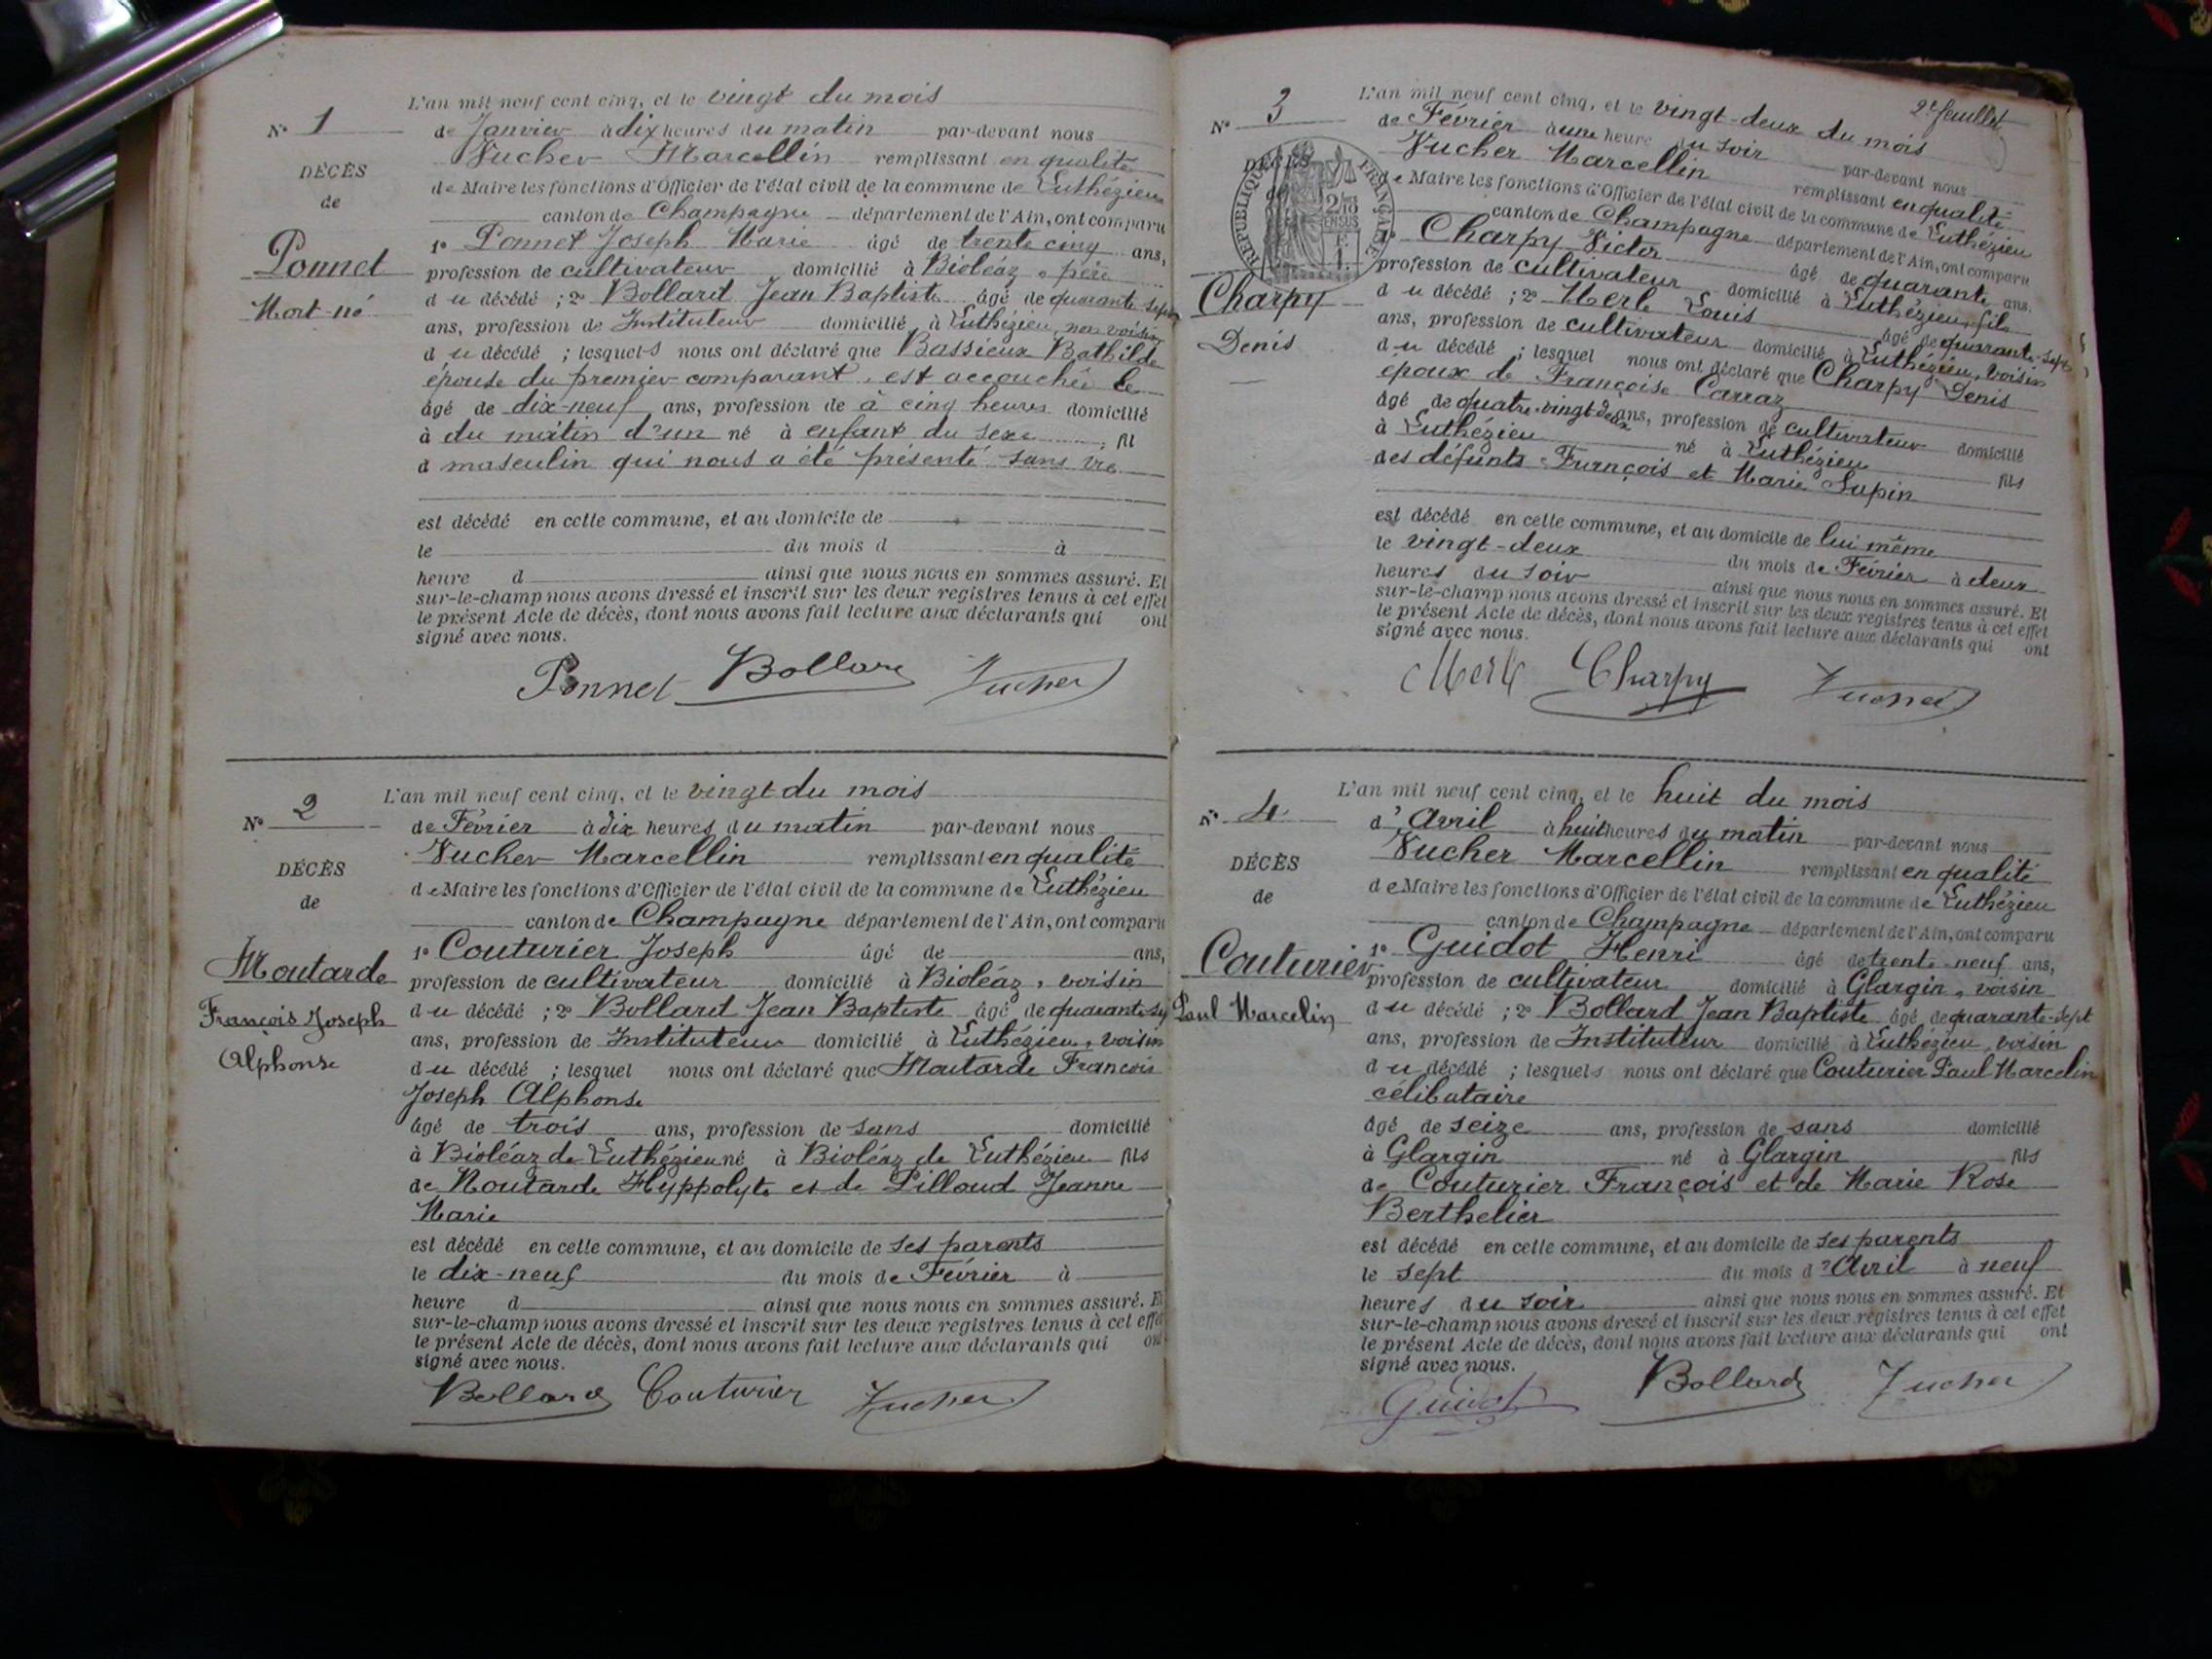 L'an mil neuf cent cinq, et le vingt du mois
N° 1
de Janvier à dix heures du matin par-devant nous
Vucher Marcellin remplissant en qualité
DÉCÈS
de Maire les fonctions d'Officier de l'état civil de la commune de Luthézieu
de
canton de Champagne département de l'Ain, ont comparu
Ponnet
1° Ponnet Joseph Marie âgé de trente cinq ans,
profession de cultivateur domicilié à Bioléaz, père
Mort-né
du décédé ; 2° Bollard Jean Baptiste âgé de quarante sept
ans, profession de Instituteur domicilié à Luthézieu, non voisin
du décédé ; lesquels nous ont déclaré que Bassieux Bathilde
épouse du premier comparant, est accouchée le
âgé de dix-neuf ans, profession de à cinq heures domicilié
à du matin d'un né à enfant du sexe fil
d masculin qui nous a été présenté sans vie
est décédé en cette commune, et au domicile de
le du mois d à
heure d ainsi que nous nous en sommes assuré. Et
sur-le-champ nous avons dressé et inscrit sur les deux registres tenus à cet effet
le présent Acte de décès, dont nous avons fait lecture aux déclarants qui ont
signé avec nous.
Ponnet Bollard Vucher
L'an mil neuf cent cinq, et le vingt du mois
N° 2
de Février à dix heures du matin par-devant nous
Vucher Marcellin remplissant en qualité
DÉCÈS
de Maire les fonctions d'Officier de l'état civil de la commune de Luthézieu
de
canton de Champagne département de l'Ain, ont comparu
1° Couturier Joseph âgé de ans,
Moutarde
profession de cultivateur domicilié à Bioléaz, voisin
François Joseph
du décédé ; 2° Bollard Jean Baptiste âgé de quarante sep
ans, profession de Instituteur domicilié à Luthézieu, voisin
Alphonse
du décédé ; lesquel nous ont déclaré que Moutarde François
Joseph Alphonse
âgé de trois ans, profession de sans domicilié
à Bioléaz de Luthézieu né à Bioléaz de Luthézieu fils
de Moutarde Hyppolyte et de Pilloud Jeanne
Marie
est décédé en cette commune, et au domicile de ses parents
le dix-neuf du mois de Février à
heure d ainsi que nous nous en sommes assuré. Et
sur-le-champ nous avons dressé et inscrit sur les deux registres tenus à cet effe
le présent Acte de décès, dont nous avons fait lecture aux déclarants qui ont
signé avec nous.
Bollard Couturier Vucher
2e feuillet
L'an mil neuf cent cinq, et le vingt-deux du mois
N° 3
de Février à une heure du soir par-devant nous
Vucher Marcellin remplissant en qualité
DÉCÈS
RÉPUBLIQUE FRANÇAISE
de Maire les fonctions d'Officier de l'état civil de la commune de Luthézieu
canton de Champagne département de l'Ain, ont comparu
1° Charpy Victor âgé de quarante ans.
profession de cultivateur domicilié à Luthézieu, fils
Charpy
du décédé ; 2° Merle Louis âgé de quarante-sept
Denis
ans, profession de cultivateur domicilié à Luthézieu, voisin
du décédé ; lesquel nous ont déclaré que Charpy Denis
époux de Françoise Carraz
âgé de quatre-vingt deux ans, profession de cultivateur domicilié
à Luthézieu né à Luthézieu fils
des défunts François et Marie Supin
est décédé en cette commune, et au domicile de lui même
le vingt-deux du mois de Février à deux
heures du soir ainsi que nous nous en sommes assuré. Et
sur-le-champ nous avons dressé et inscrit sur les deux registres tenus à cet effet
le présent Acte de décès, dont nous avons fait lecture aux déclarants qui ont
signé avec nous.
Merle Charpy Vucher
L'an mil neuf cent cinq, et le huit du mois
N° 4
d'Avril à huit heures du matin par-devant nous
Vucher Marcellin remplissant en qualité
DÉCÈS
de Maire les fonctions d'Officier de l'état civil de la commune de Luthézieu
de
canton de Champagne département de l'Ain, ont comparu
Couturier
1° Guidot Henri âgé de trente-neuf ans,
profession de cultivateur domicilié à Glargin, voisin
Paul Marcelin
du décédé ; 2° Bollard Jean Baptiste âgé de quarante-sept
ans, profession de Instituteur domicilié à Luthézieu, voisin
du décédé ; lesquels nous ont déclaré que Couturier Paul Marcelin
célibataire
âgé de seize ans, profession de sans domicilié
à Glargin né à Glargin fils
de Couturier François et de Marie Rose
Berthelier
est décédé en cette commune, et au domicile de ses parents
le sept du mois d'Avril à neuf
heures du soir ainsi que nous nous en sommes assuré. Et
sur-le-champ nous avons dressé et inscrit sur les deux registres tenus à cet effet
le présent Acte de décès, dont nous avons fait lecture aux déclarants qui ont
signé avec nous.
Guidot Bollard Vucher